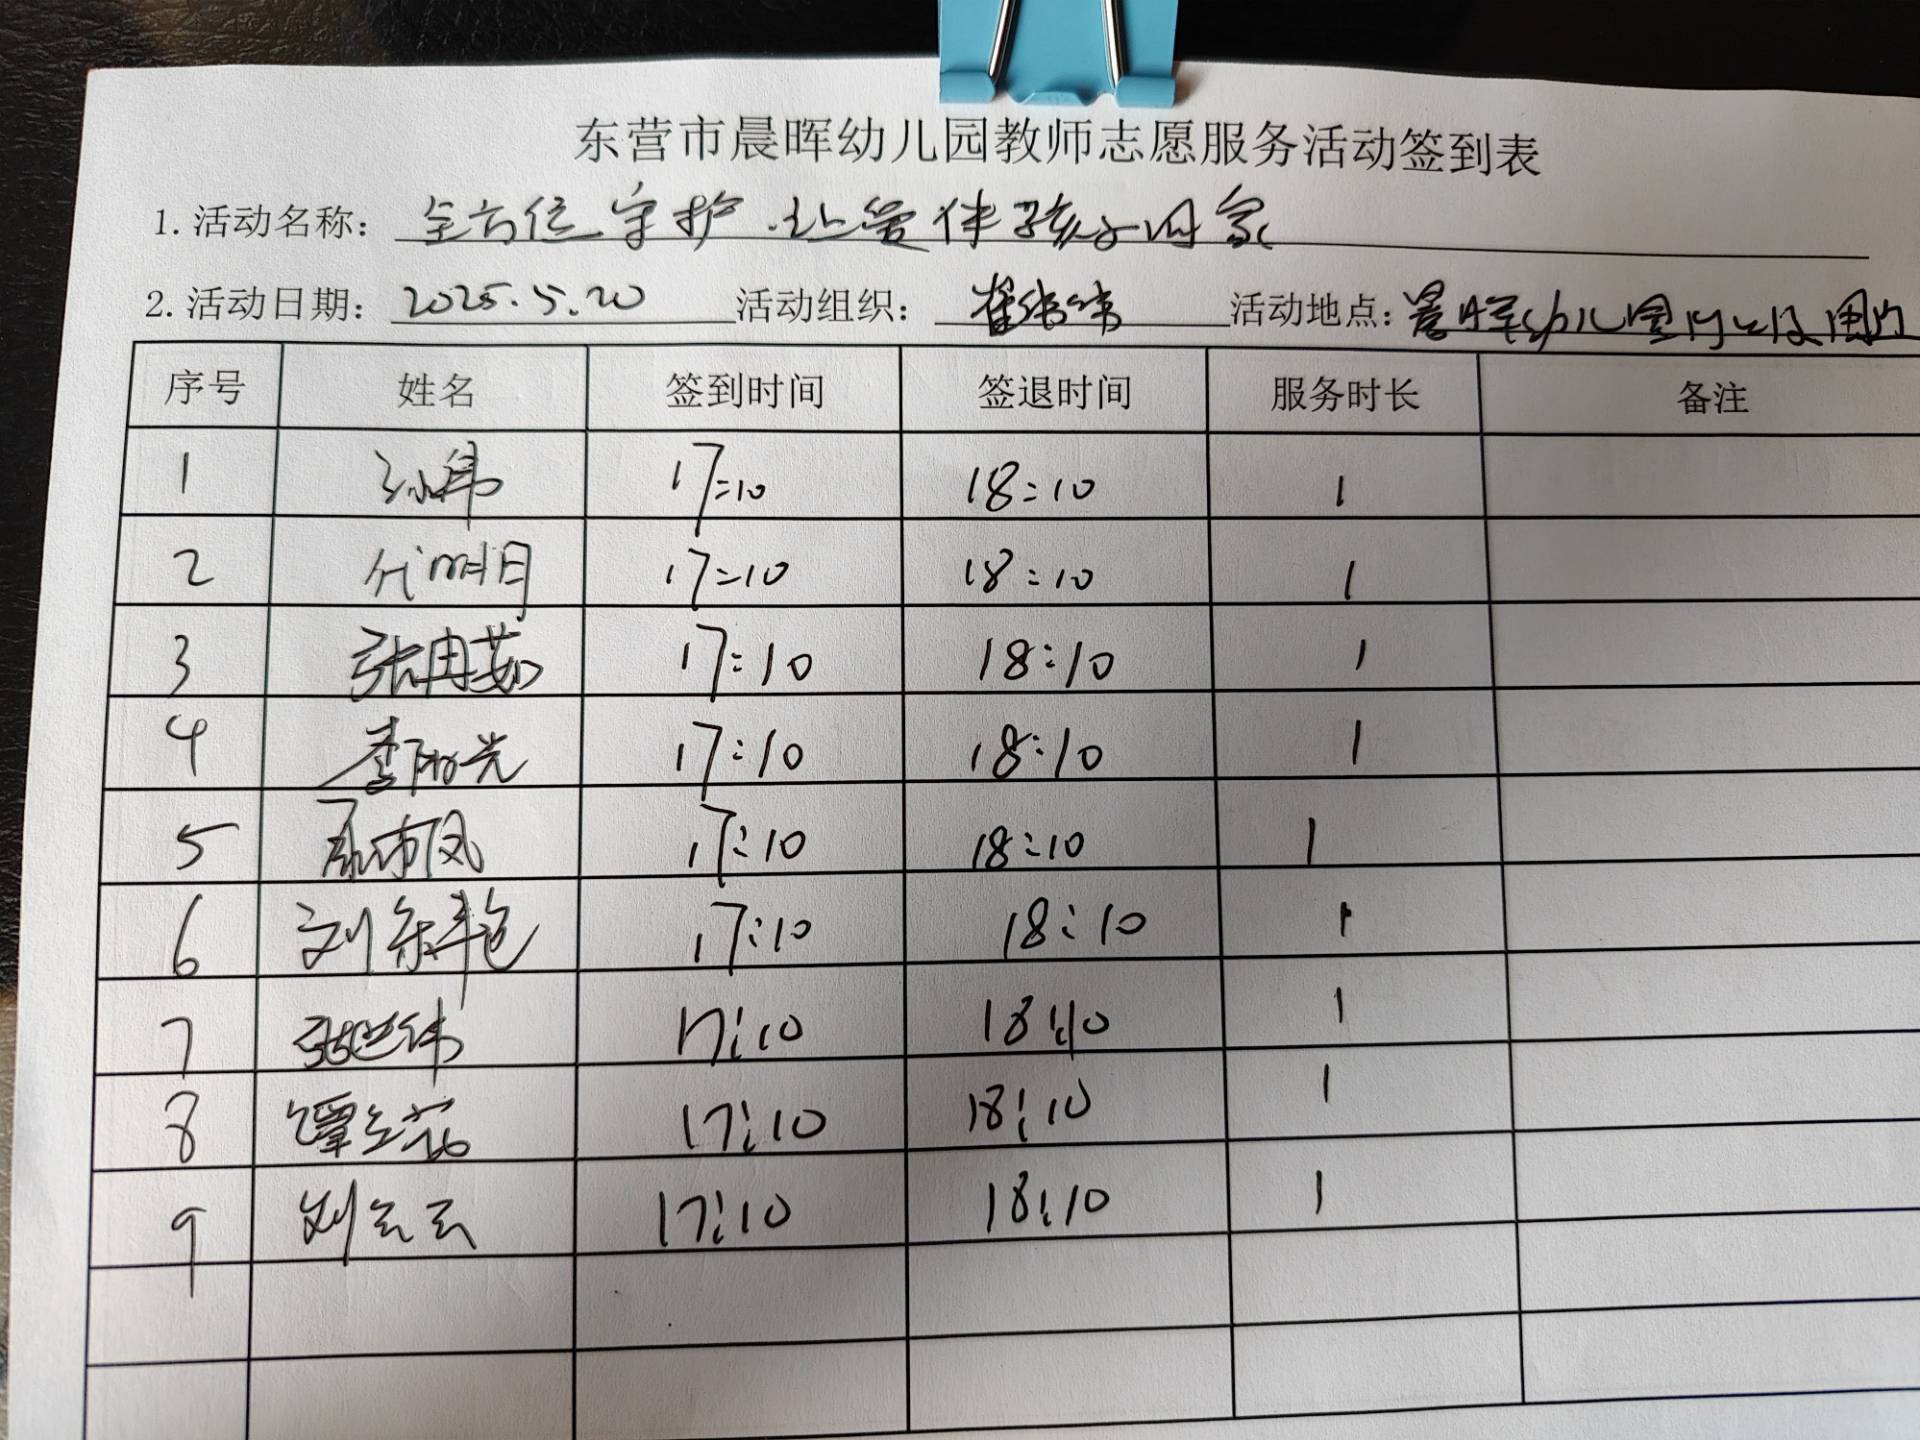 东营市晨晖幼儿园教师志愿服务活动签到表
1.活动名称：全方位守护.让爱伴孩子回家
2.活动日期：2025.5.20 活动组织：崔伟伟 活动地点：晨晖幼儿园门口及周边
序号 姓名 签到时间 签退时间 服务时长 备注
1 孙伟 17:10 18:10 1
2 17:10 18:10 1
3 张冉茹 17:10 18:10 1
4 李阳光 17:10 18:10 1
5 17:10 18:10 1
6 刘 17:10 18:10 1
7 张世伟 17:10 18:10 1
8 谭兰花 17:10 18:10 1
9 刘云云 17:10 18:10 1